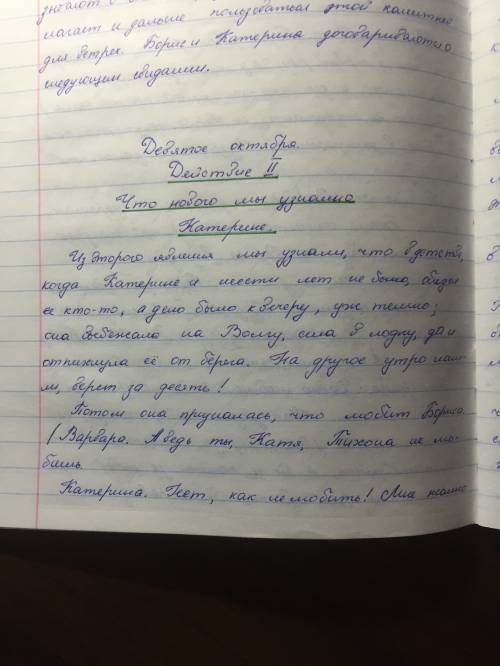 лагает и дальше пользоваться этой калиткой
для встреч. Борис и Катерина договариваются о
следующем свидании.
Девятое октября.
Действие II
Что нового мы узнаем о
Катерине.
Из второго явления мы узнали, что в детстве,
когда Катерине и шести лет не было, обидел
ее кто-то, а дело было к вечеру, уж темно;
она выбежала на Волгу, села в лодку, да и
отпихнула её от берега. На другое утро наш-
ли, верст за десять!
Потом она призналась, что любит Бориса.
/Варвара. А ведь ты, Катя, Тихона не лю-
бишь.
Катерина. Нет, как не любить! Мне жалко